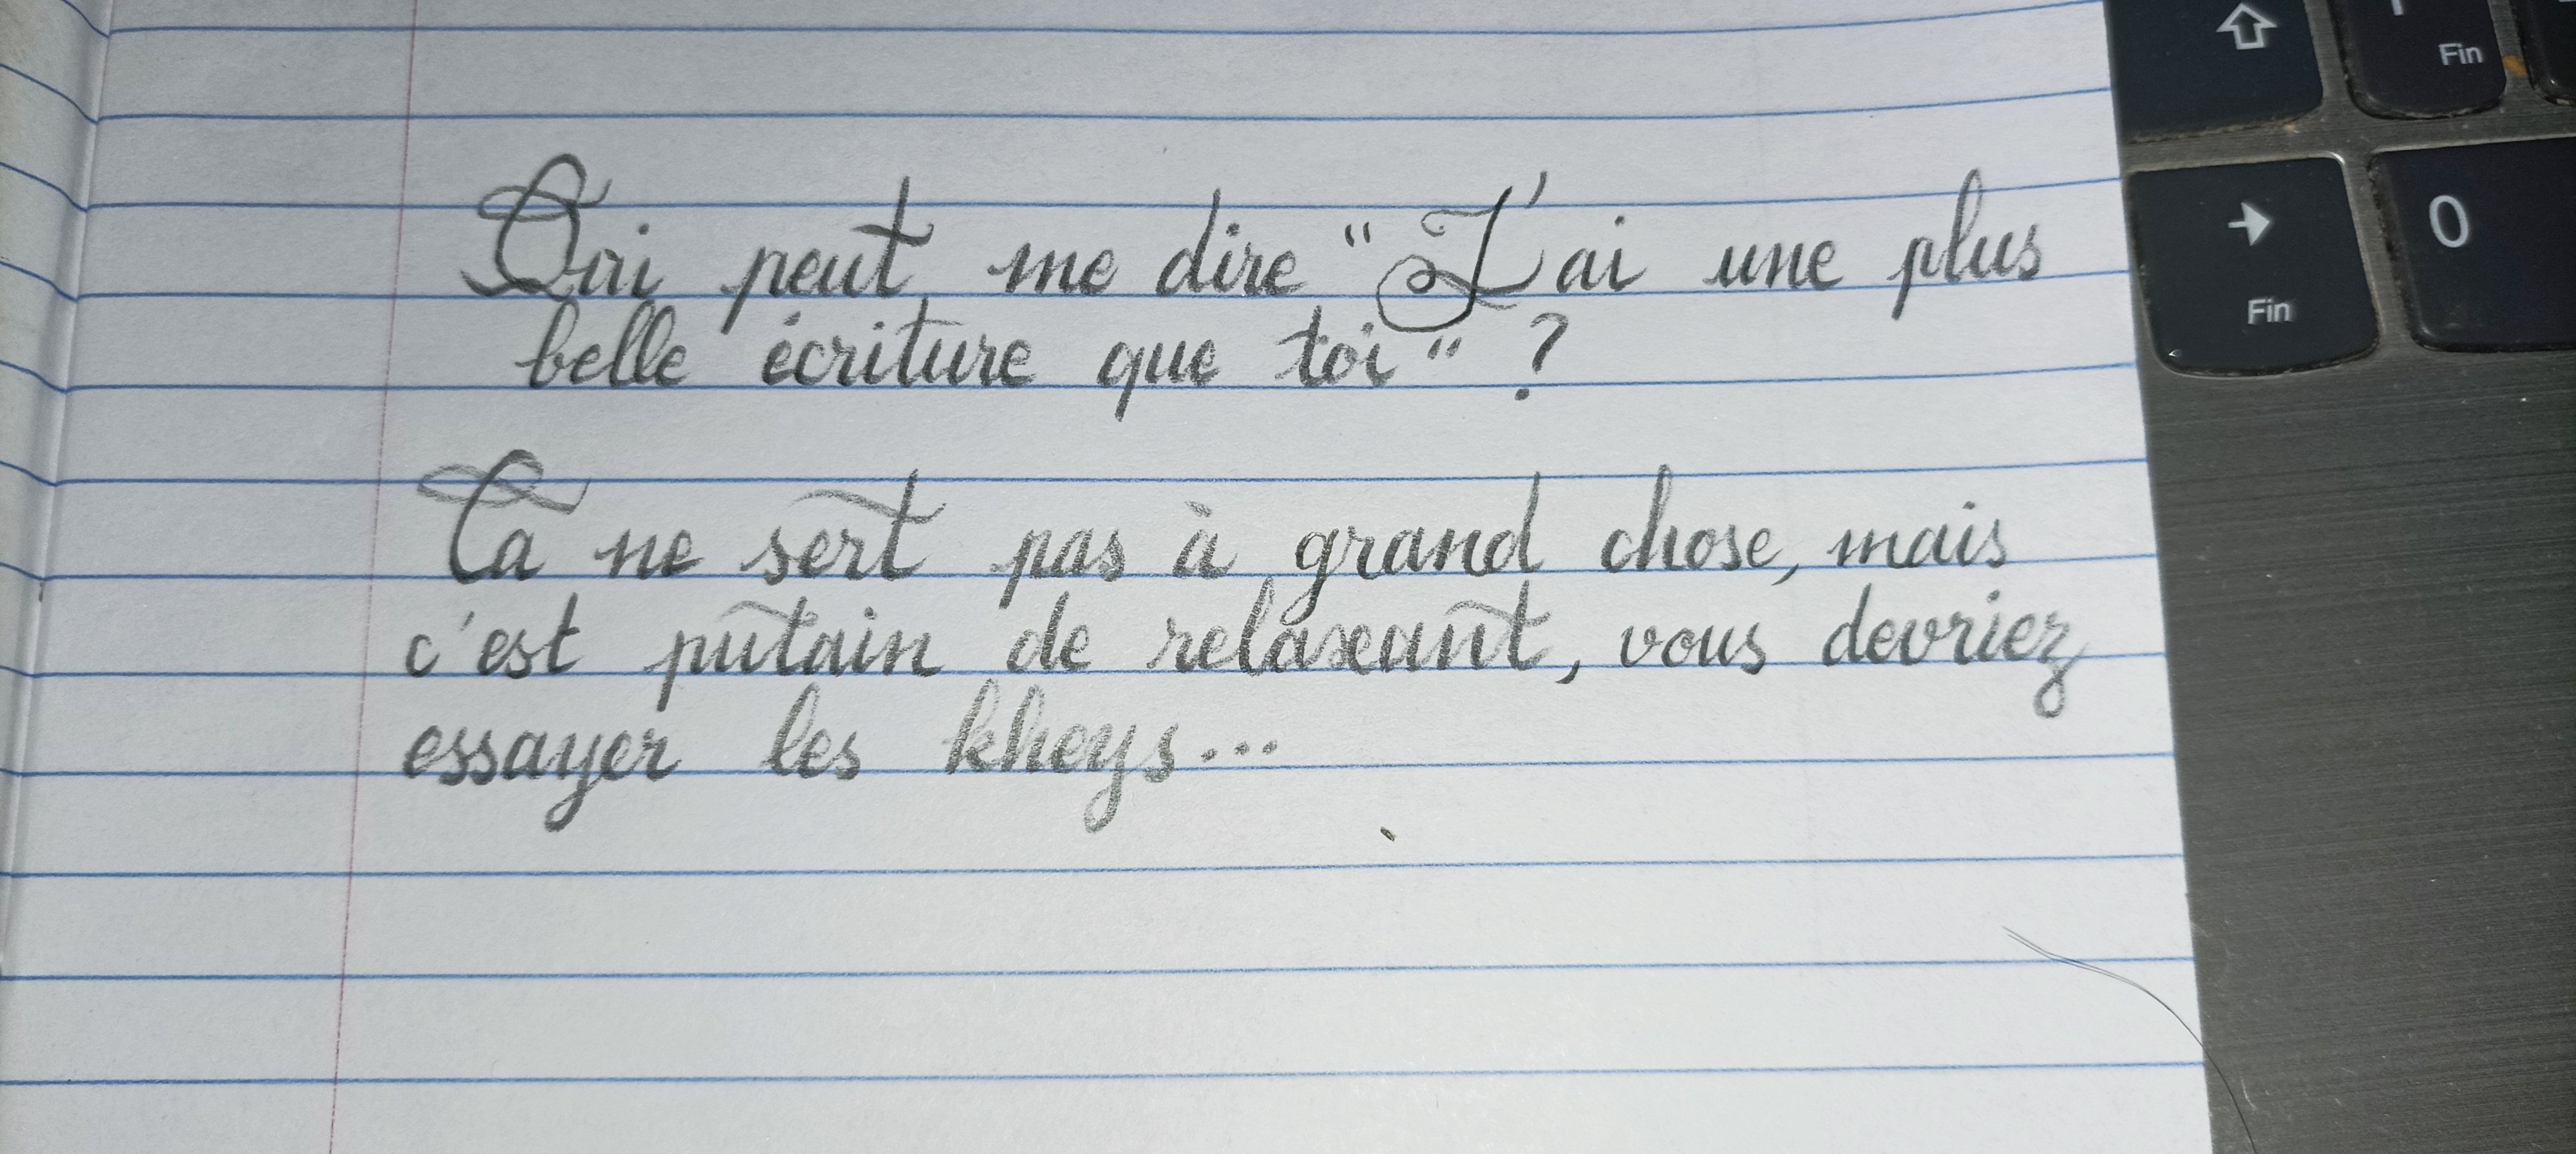 Qui peut me dire "J'ai une plus
belle écriture que toi" ?
Ca ne sert pas à grand chose, mais
c'est putain de relaxant, vous devriez
essayer les kheys...
Fin
Fin
0